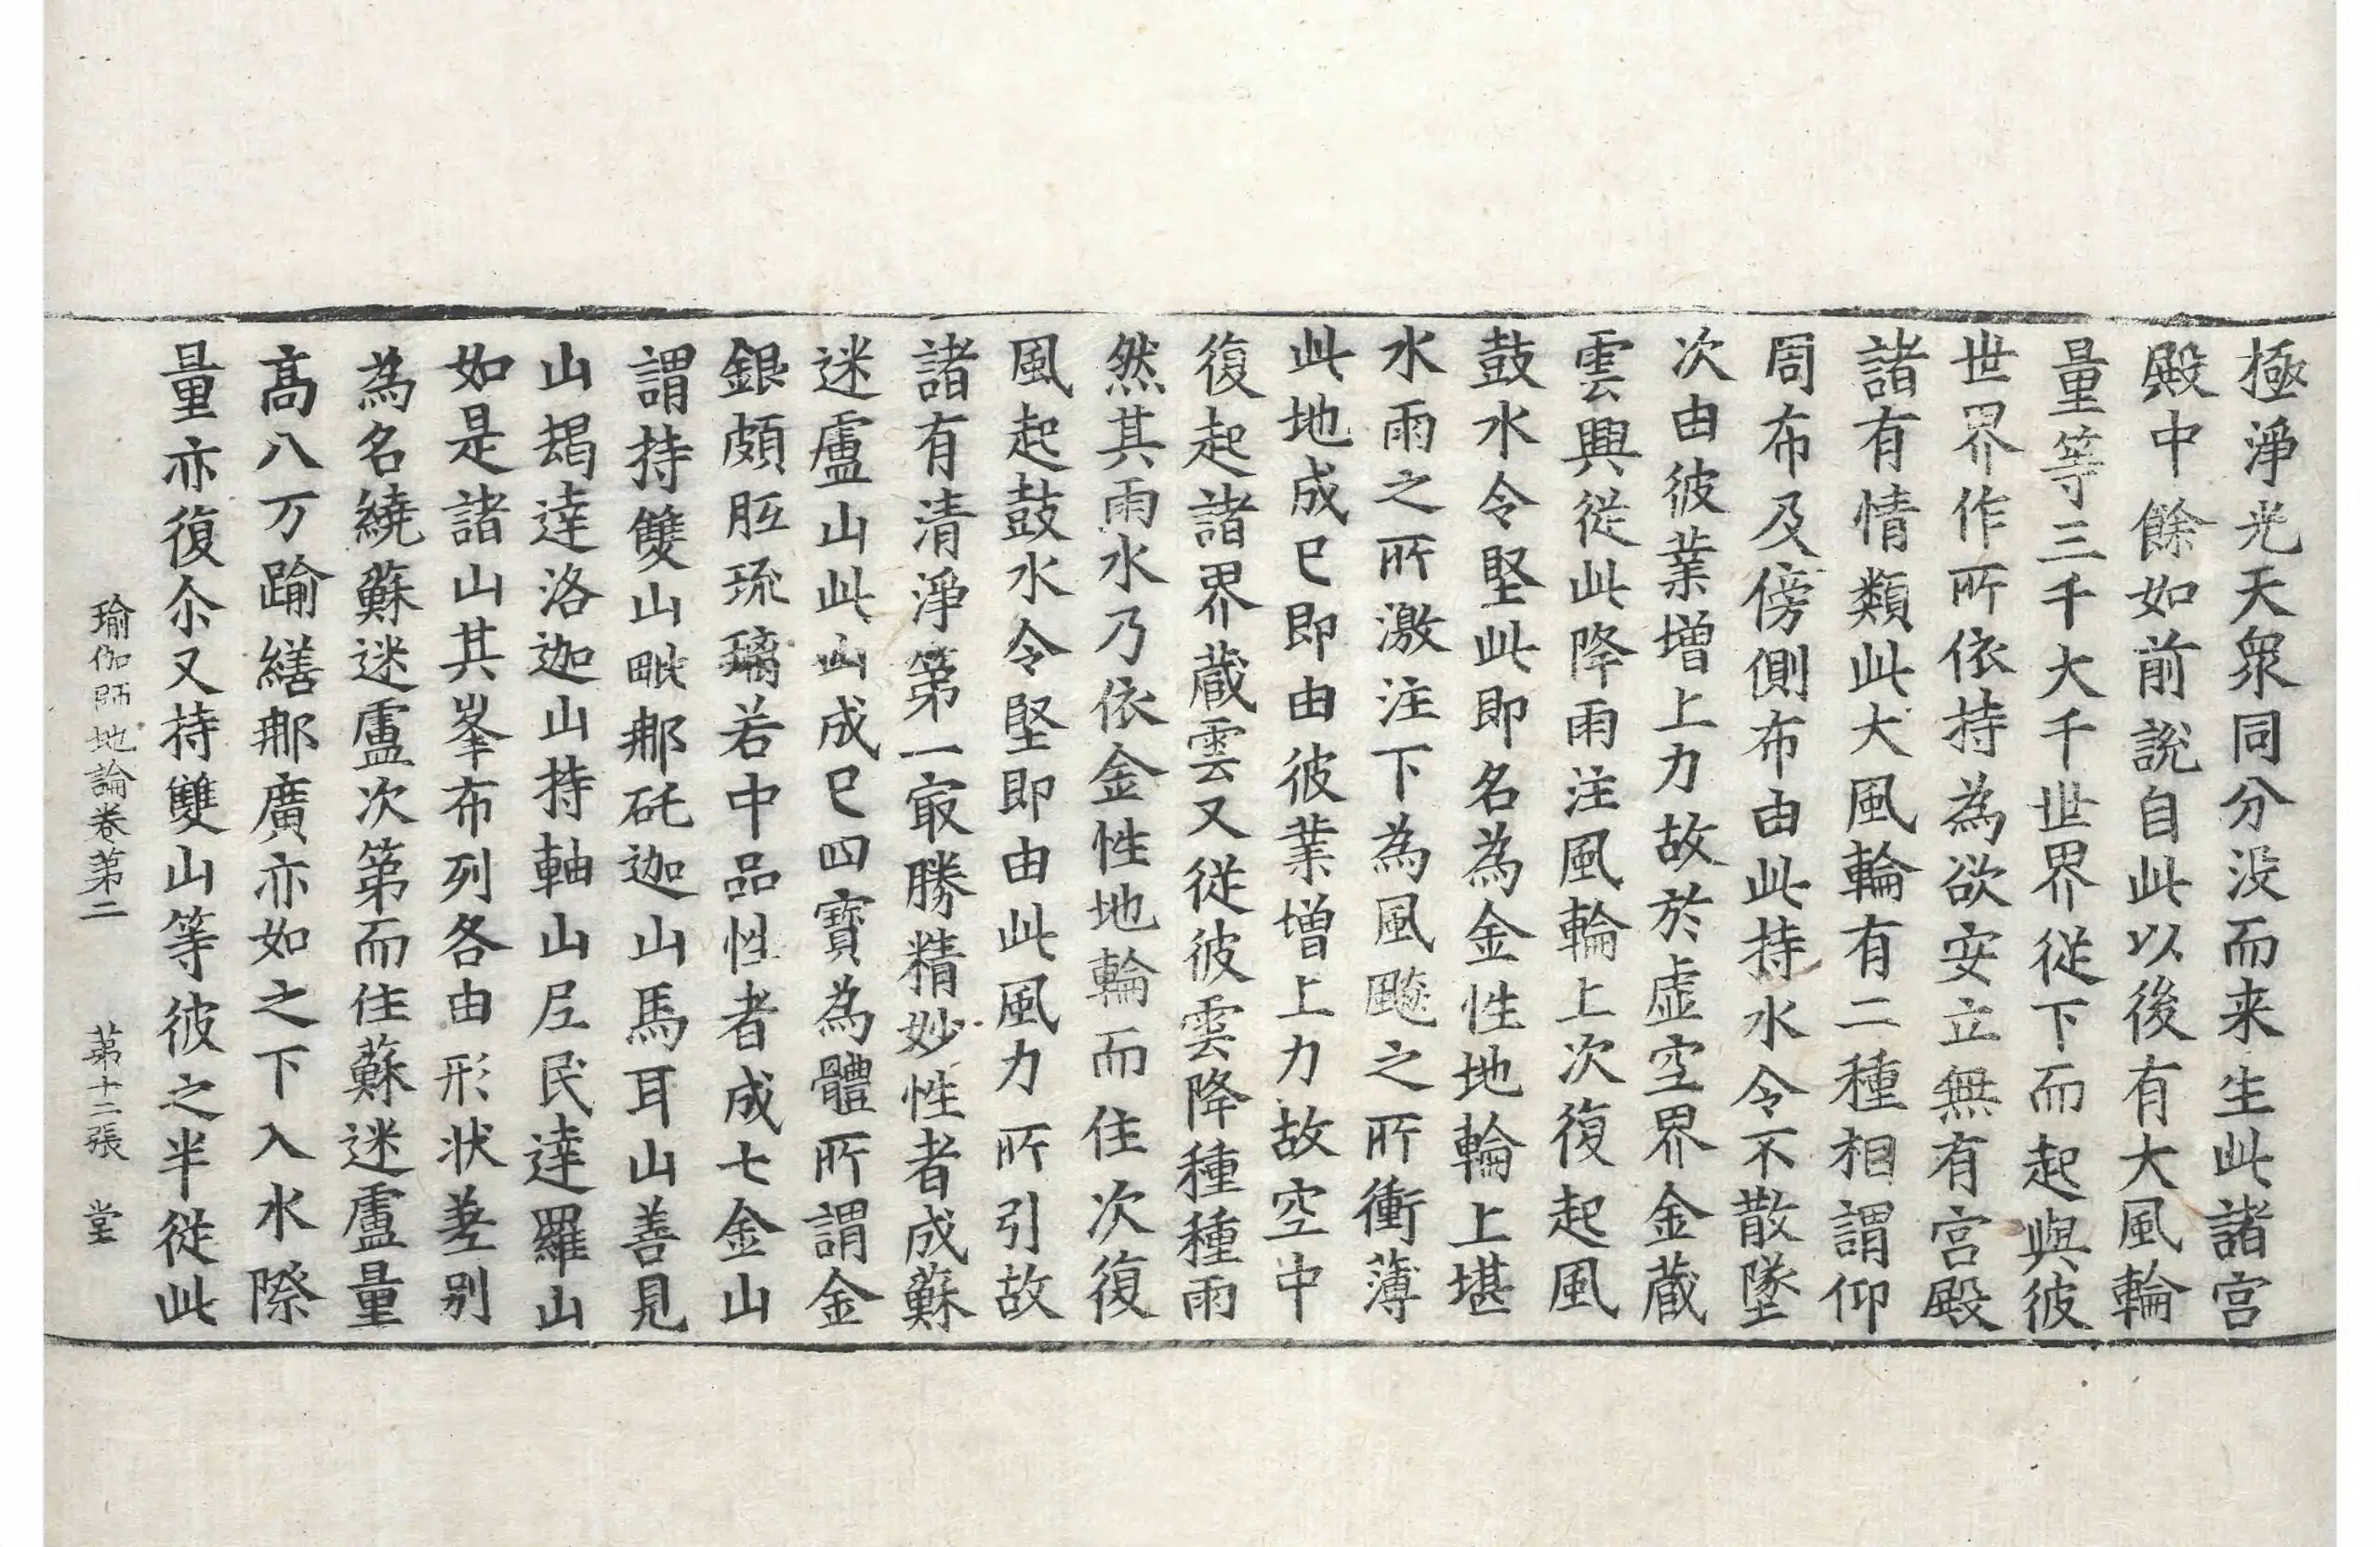 極淨光天衆同分没而来生此諸宫
殿中餘如前說自此以後有大風輪
量等三千大千世界從下而起與彼
世界作所依持為欲安立無有宫殿
諸有情類此大風輪有二種相謂仰
周布及傍側布由此持水令不散墜
次由彼業增上力故於虚空界金蔵
雲興從此降雨注風輪上次復起風
鼓水令堅此即名為金性地輪上堪
水雨之所激注下為風飈之所衝薄
此地成已即由彼業增上力故空中
復起諸界蔵雲又從彼雲降種種雨
然其雨水乃依金性地輪而住次復
風起鼓水令堅即由此風力所引故
諸有清淨第一㝡勝精妙性者成蘇
迷盧山此山成已四寶為體所謂金
銀頗胝琉璃若中品性者成七金山
謂持雙山毗那砣迦山馬耳山善見
山朅達洛迦山持軸山尼民達羅山
如是諸山其峯布列各由形状差别
為名繞蘇迷盧次第而住蘇迷盧量
髙八万踰繕那廣亦如之下入水際
量亦復尒又持雙山等彼之半從此
瑜伽師地論卷第二 第十二張 堂